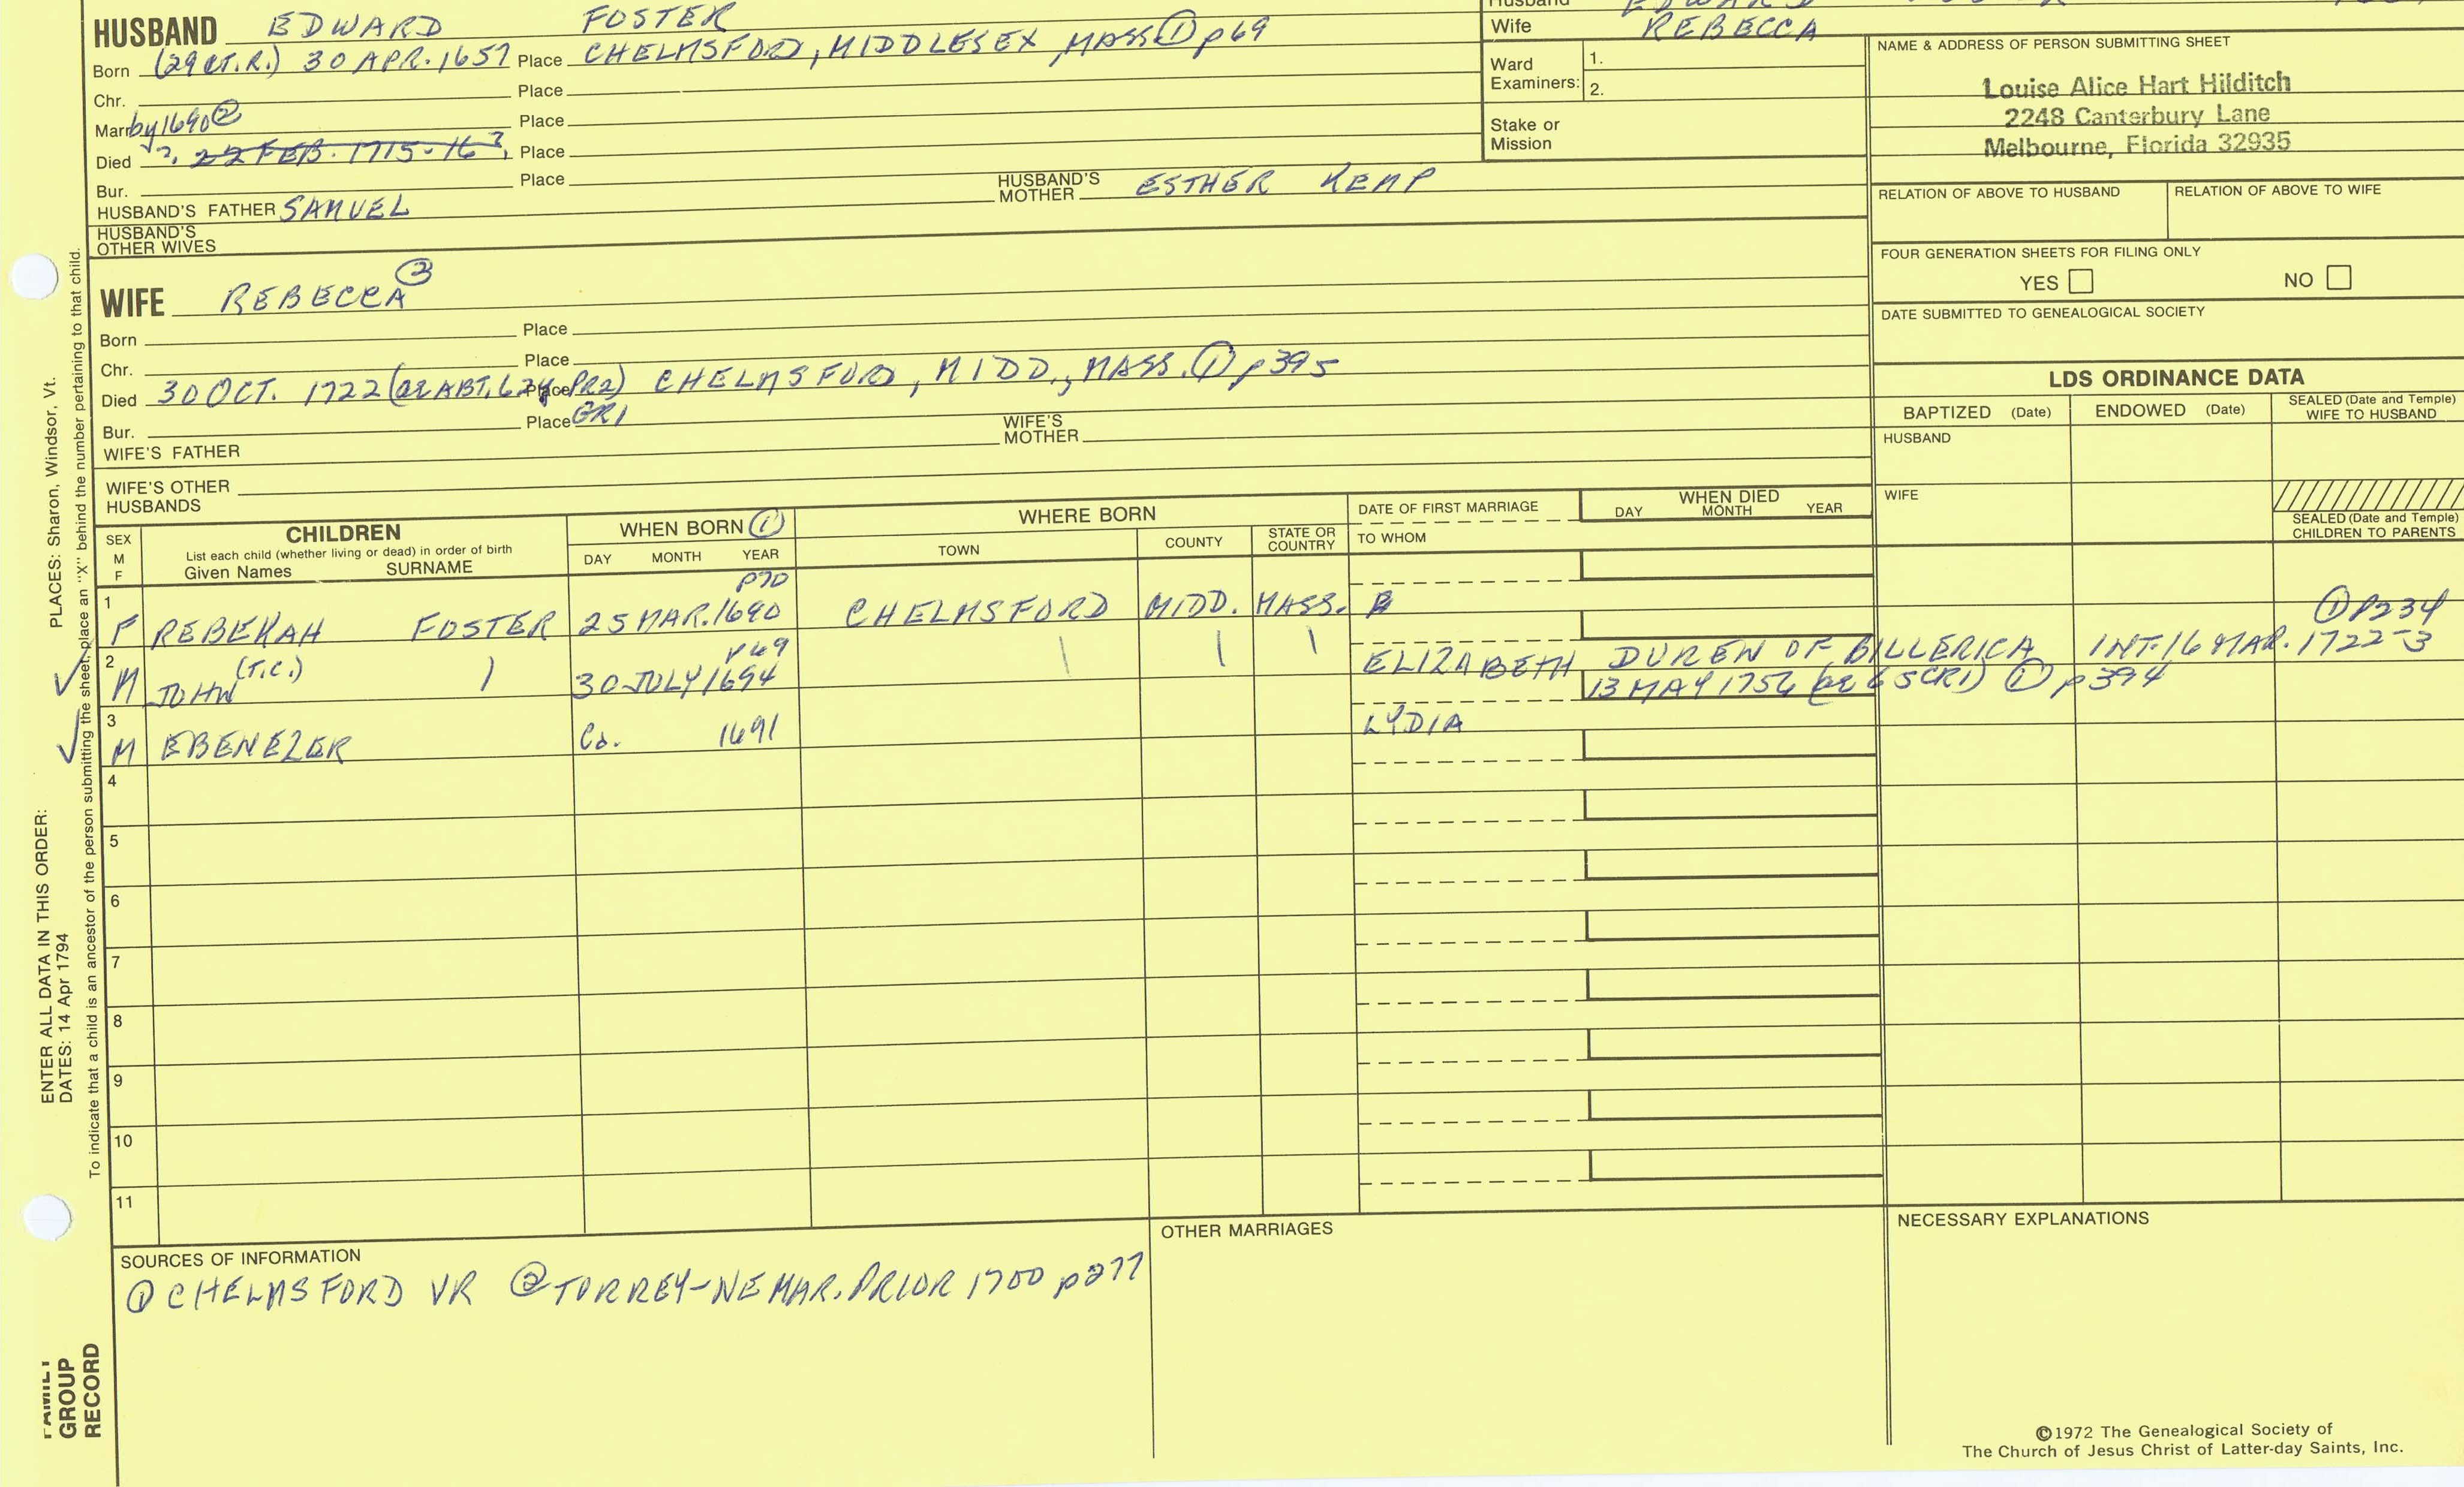 HUSBAND EDWARD FOSTER
Born (29 CT.R.) 30 APR. 1657 Place CHELMSFORD, MIDDLESEX, MASS ① p69
Chr. Place
Marr by 1690 ② Place
Died ?, 22 FEB. 1715-16 ?, Place
Bur. Place
HUSBAND'S FATHER SAMUEL HUSBAND'S MOTHER ESTHER KEMP
HUSBAND'S OTHER WIVES
Husband
Wife REBECCA
Ward Examiners: 1.
2.
Stake or Mission
NAME & ADDRESS OF PERSON SUBMITTING SHEET
Louise Alice Hart Hilditch
2248 Canterbury Lane
Melbourne, Florida 32935
RELATION OF ABOVE TO HUSBAND RELATION OF ABOVE TO WIFE
FOUR GENERATION SHEETS FOR FILING ONLY
YES NO
DATE SUBMITTED TO GENEALOGICAL SOCIETY
WIFE REBECCA ③
Born Place
Chr. Place
Died 30 OCT. 1722 (ae ABT. 62y PR2) Place CHELMSFORD, MIDD., MASS. ① p395
Bur. Place GR1
WIFE'S FATHER WIFE'S MOTHER
WIFE'S OTHER HUSBANDS
LDS ORDINANCE DATA
BAPTIZED (Date) ENDOWED (Date) SEALED (Date and Temple) WIFE TO HUSBAND
HUSBAND
WIFE
SEALED (Date and Temple) CHILDREN TO PARENTS
SEX M F CHILDREN WHEN BORN ① WHERE BORN DATE OF FIRST MARRIAGE WHEN DIED
List each child (whether living or dead) in order of birth
Given Names SURNAME DAY MONTH YEAR TOWN COUNTY STATE OR COUNTRY TO WHOM DAY MONTH YEAR
p70
1 F REBEKAH FOSTER 25 MAR. 1690 CHELMSFORD MIDD. MASS.
① p234
p69
2 M JOHN (T.C.) 30 JULY 1694 ELIZABETH DUREN OF BILLERICA INT. 16 MAR. 1722-3
13 MAY 1756 ① p394
3 M EBENEZER Ca. 1691 LYDIA
4
5
6
7
8
9
10
11
SOURCES OF INFORMATION
① CHELMSFORD VR ② TORREY-NE MAR. PRIOR 1700 p277
OTHER MARRIAGES
NECESSARY EXPLANATIONS
©1972 The Genealogical Society of
The Church of Jesus Christ of Latter-day Saints, Inc.
PLACES: Sharon, Windsor, Vt.
ENTER ALL DATA IN THIS ORDER:
DATES: 14 Apr 1794
To indicate that a child is an ancestor of the person submitting the sheet, place an "X" behind the number pertaining to that child.
FAMILY
GROUP
RECORD